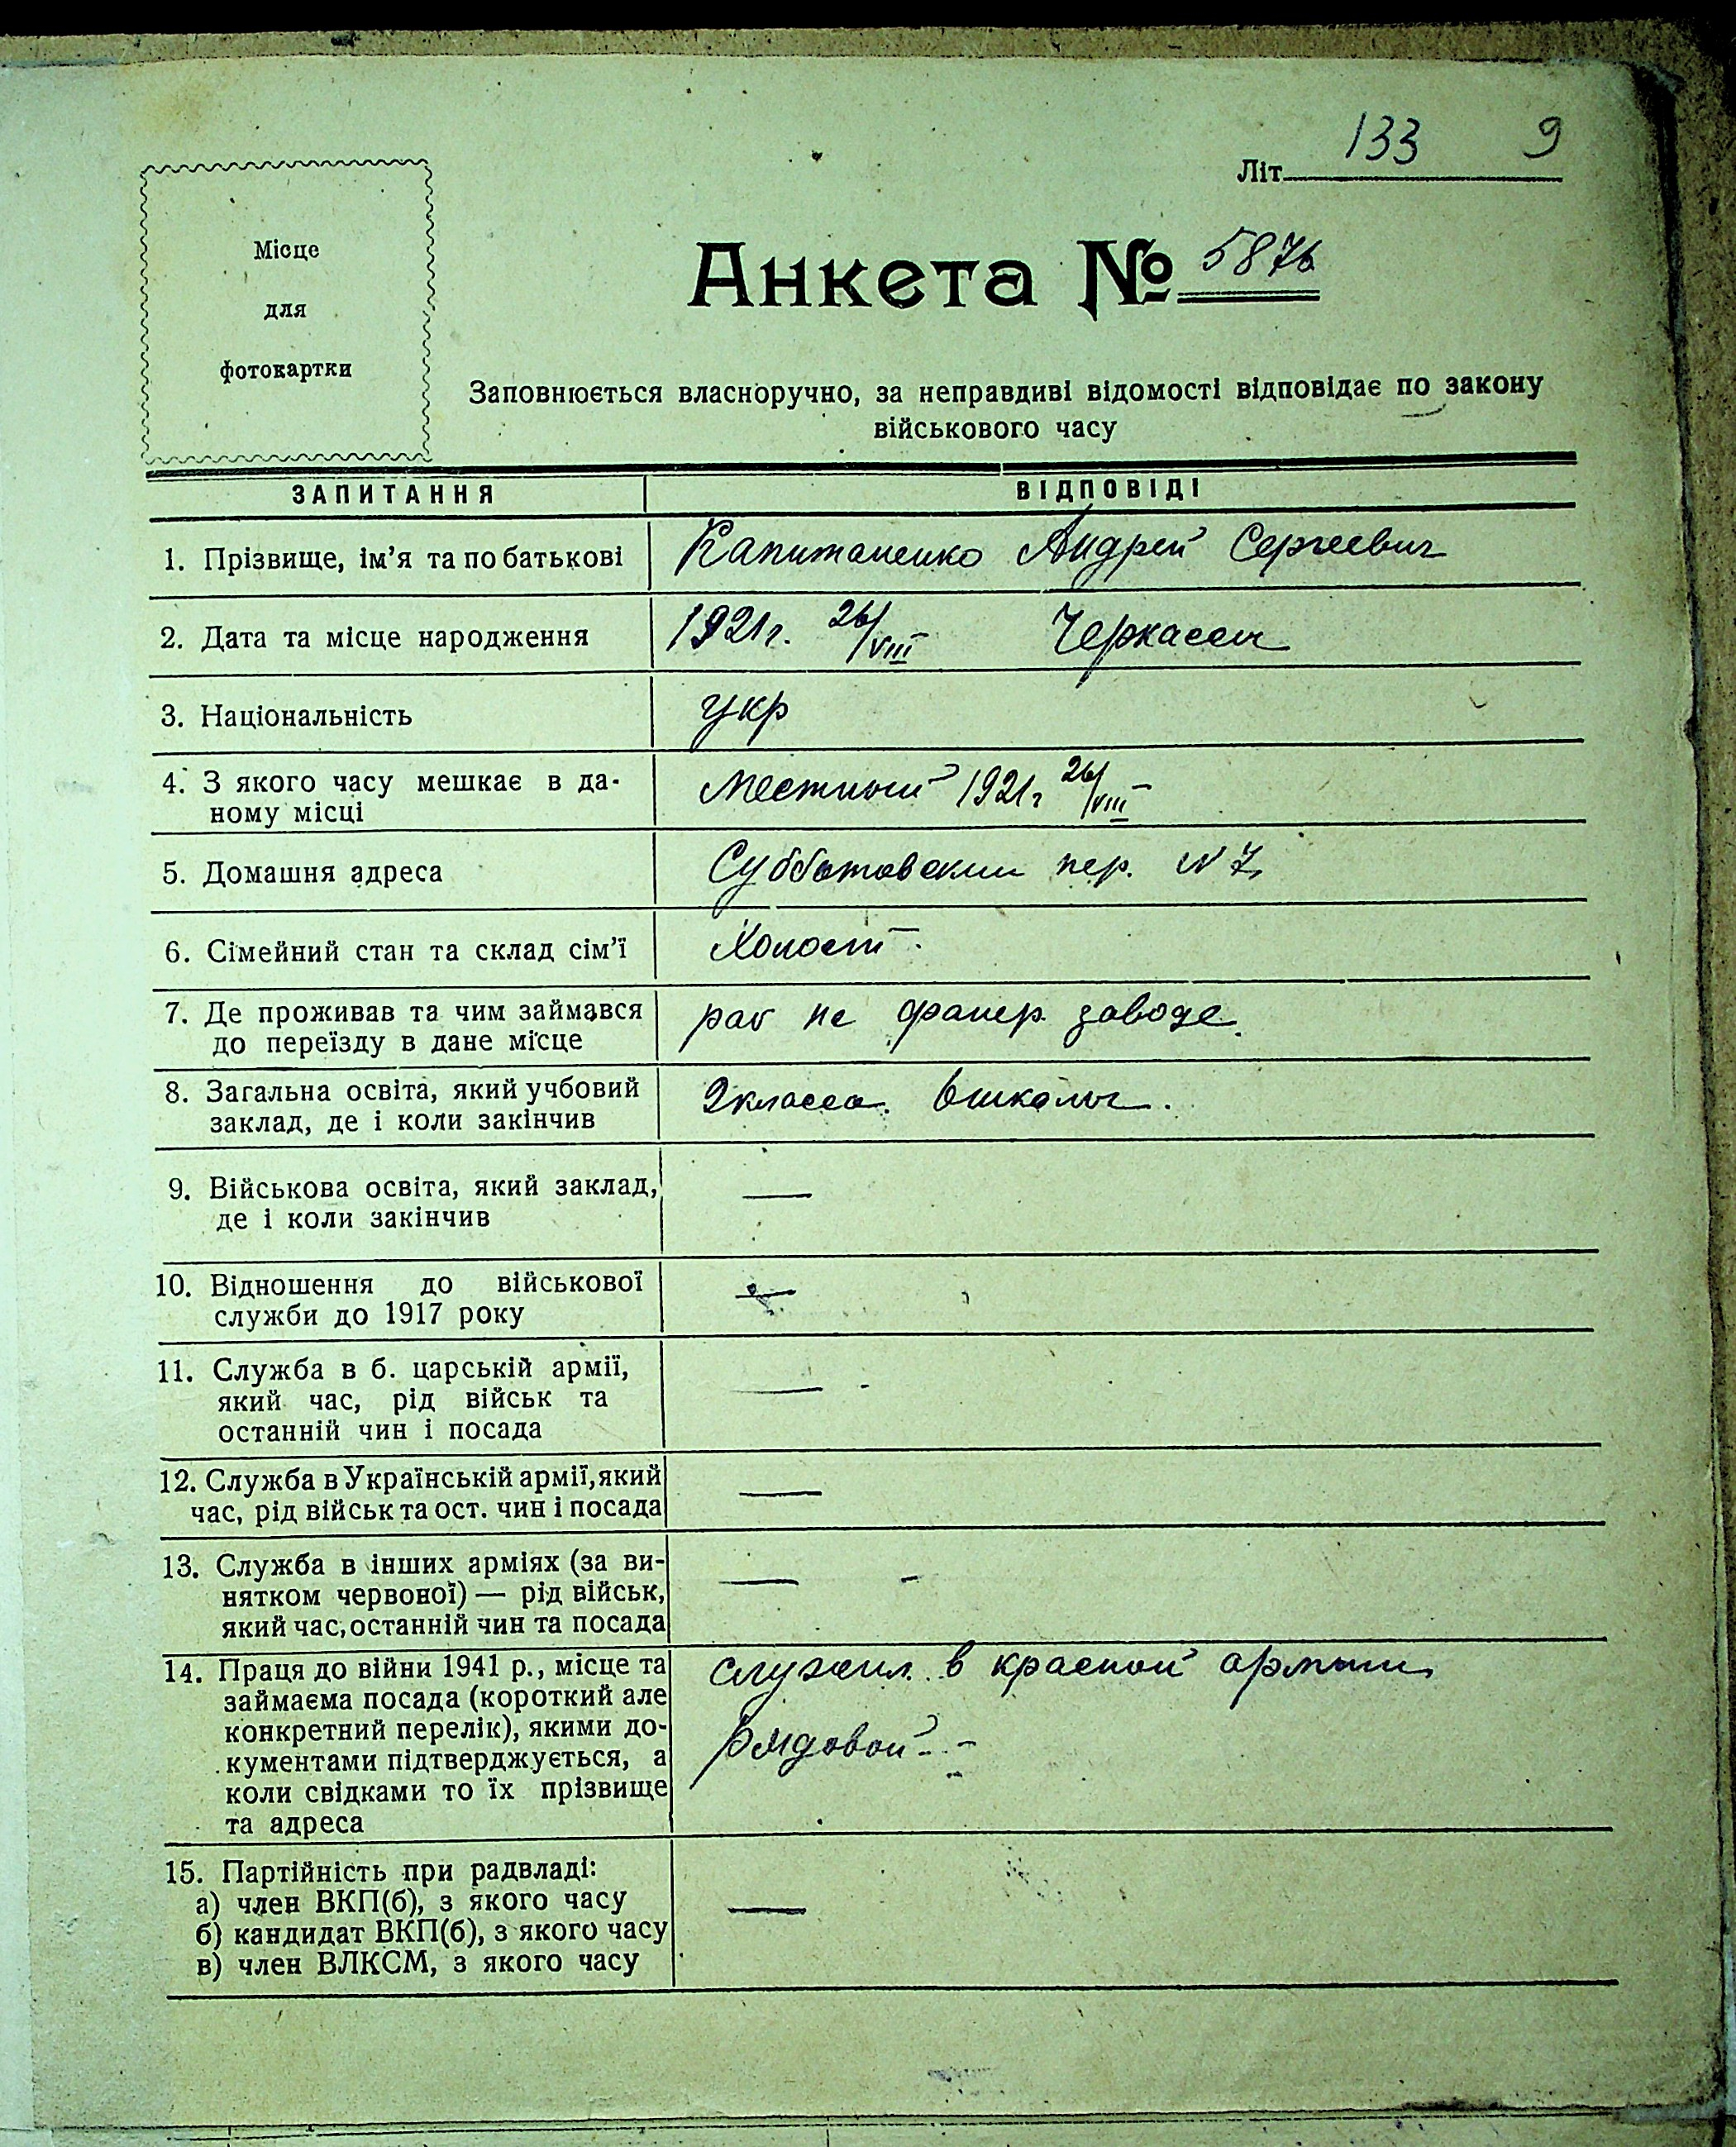 133 9
Літ.
Місце
для
фотокартки
Анкета № 5876
Заповнюється власноручно, за неправдиві відомості відповідає по закону
військового часу
ЗАПИТАННЯ ВІДПОВІДІ
1. Прізвище, ім'я та по батькові Капитаненко Андрей Сергеевич
2. Дата та місце народження 1921г. 26/VIII Черкассы
3. Національність укр
4. З якого часу мешкає в да-
ному місці Местный 1921г 26/VIII
5. Домашня адреса Субботовский пер. N 7
6. Сімейний стан та склад сім'ї Холост
7. Де проживав та чим займався
до переїзду в дане місце раб на фанер. заводе.
8. Загальна освіта, який учбовий
заклад, де і коли закінчив 2класса. школы.
9. Військова освіта, який заклад, —
де і коли закінчив
10. Відношення до військової —
служби до 1917 року
11. Служба в б. царській армії,
який час, рід військ та —
останній чин і посада
12. Служба в Українській армії, який
час, рід військ та ост. чин і посада —
13. Служба в інших арміях (за ви-
нятком червоної) — рід військ, — -
який час, останній чин та посада
14. Праця до війни 1941 р., місце та служил в красной армыи
займаєма посада (короткий але
конкретний перелік), якими до- рядовой -
кументами підтверджується, а
коли свідками то їх прізвище
та адреса
15. Партійність при радвладі:
а) член ВКП(б), з якого часу —
б) кандидат ВКП(б), з якого часу
в) член ВЛКСМ, з якого часу